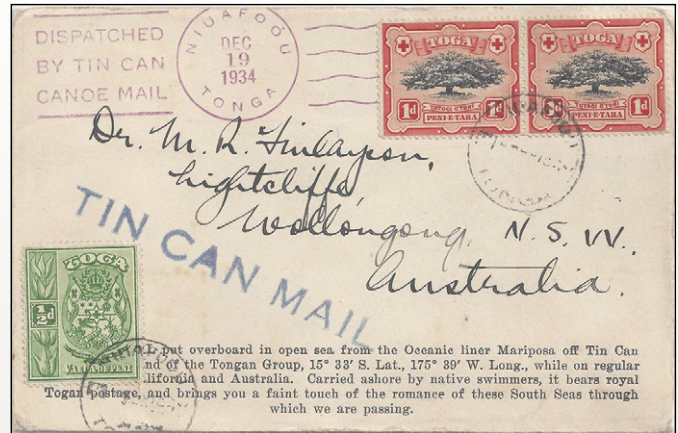 DISPATCHED
BY TIN CAN
CANOE MAIL
NIUAFOOU
DEC
19
1934
TONGA
TOGA
1d 1d
PENI-E-TAHA
TOGA
1d 1d
PENI-E-TAHA
Dr. M. R. Finlayson,
Lightcliffe
Wollongong, N. S. W.
Australia.
TIN CAN MAIL
TOGA
½d
put overboard in open sea from the Oceanic liner Mariposa off Tin Can
nd of the Tongan Group, 15° 33' S. Lat., 175° 39' W. Long., while on regular
lifornia and Australia. Carried ashore by native swimmers, it bears royal
Togan postage, and brings you a faint touch of the romance of these South Seas through
which we are passing.